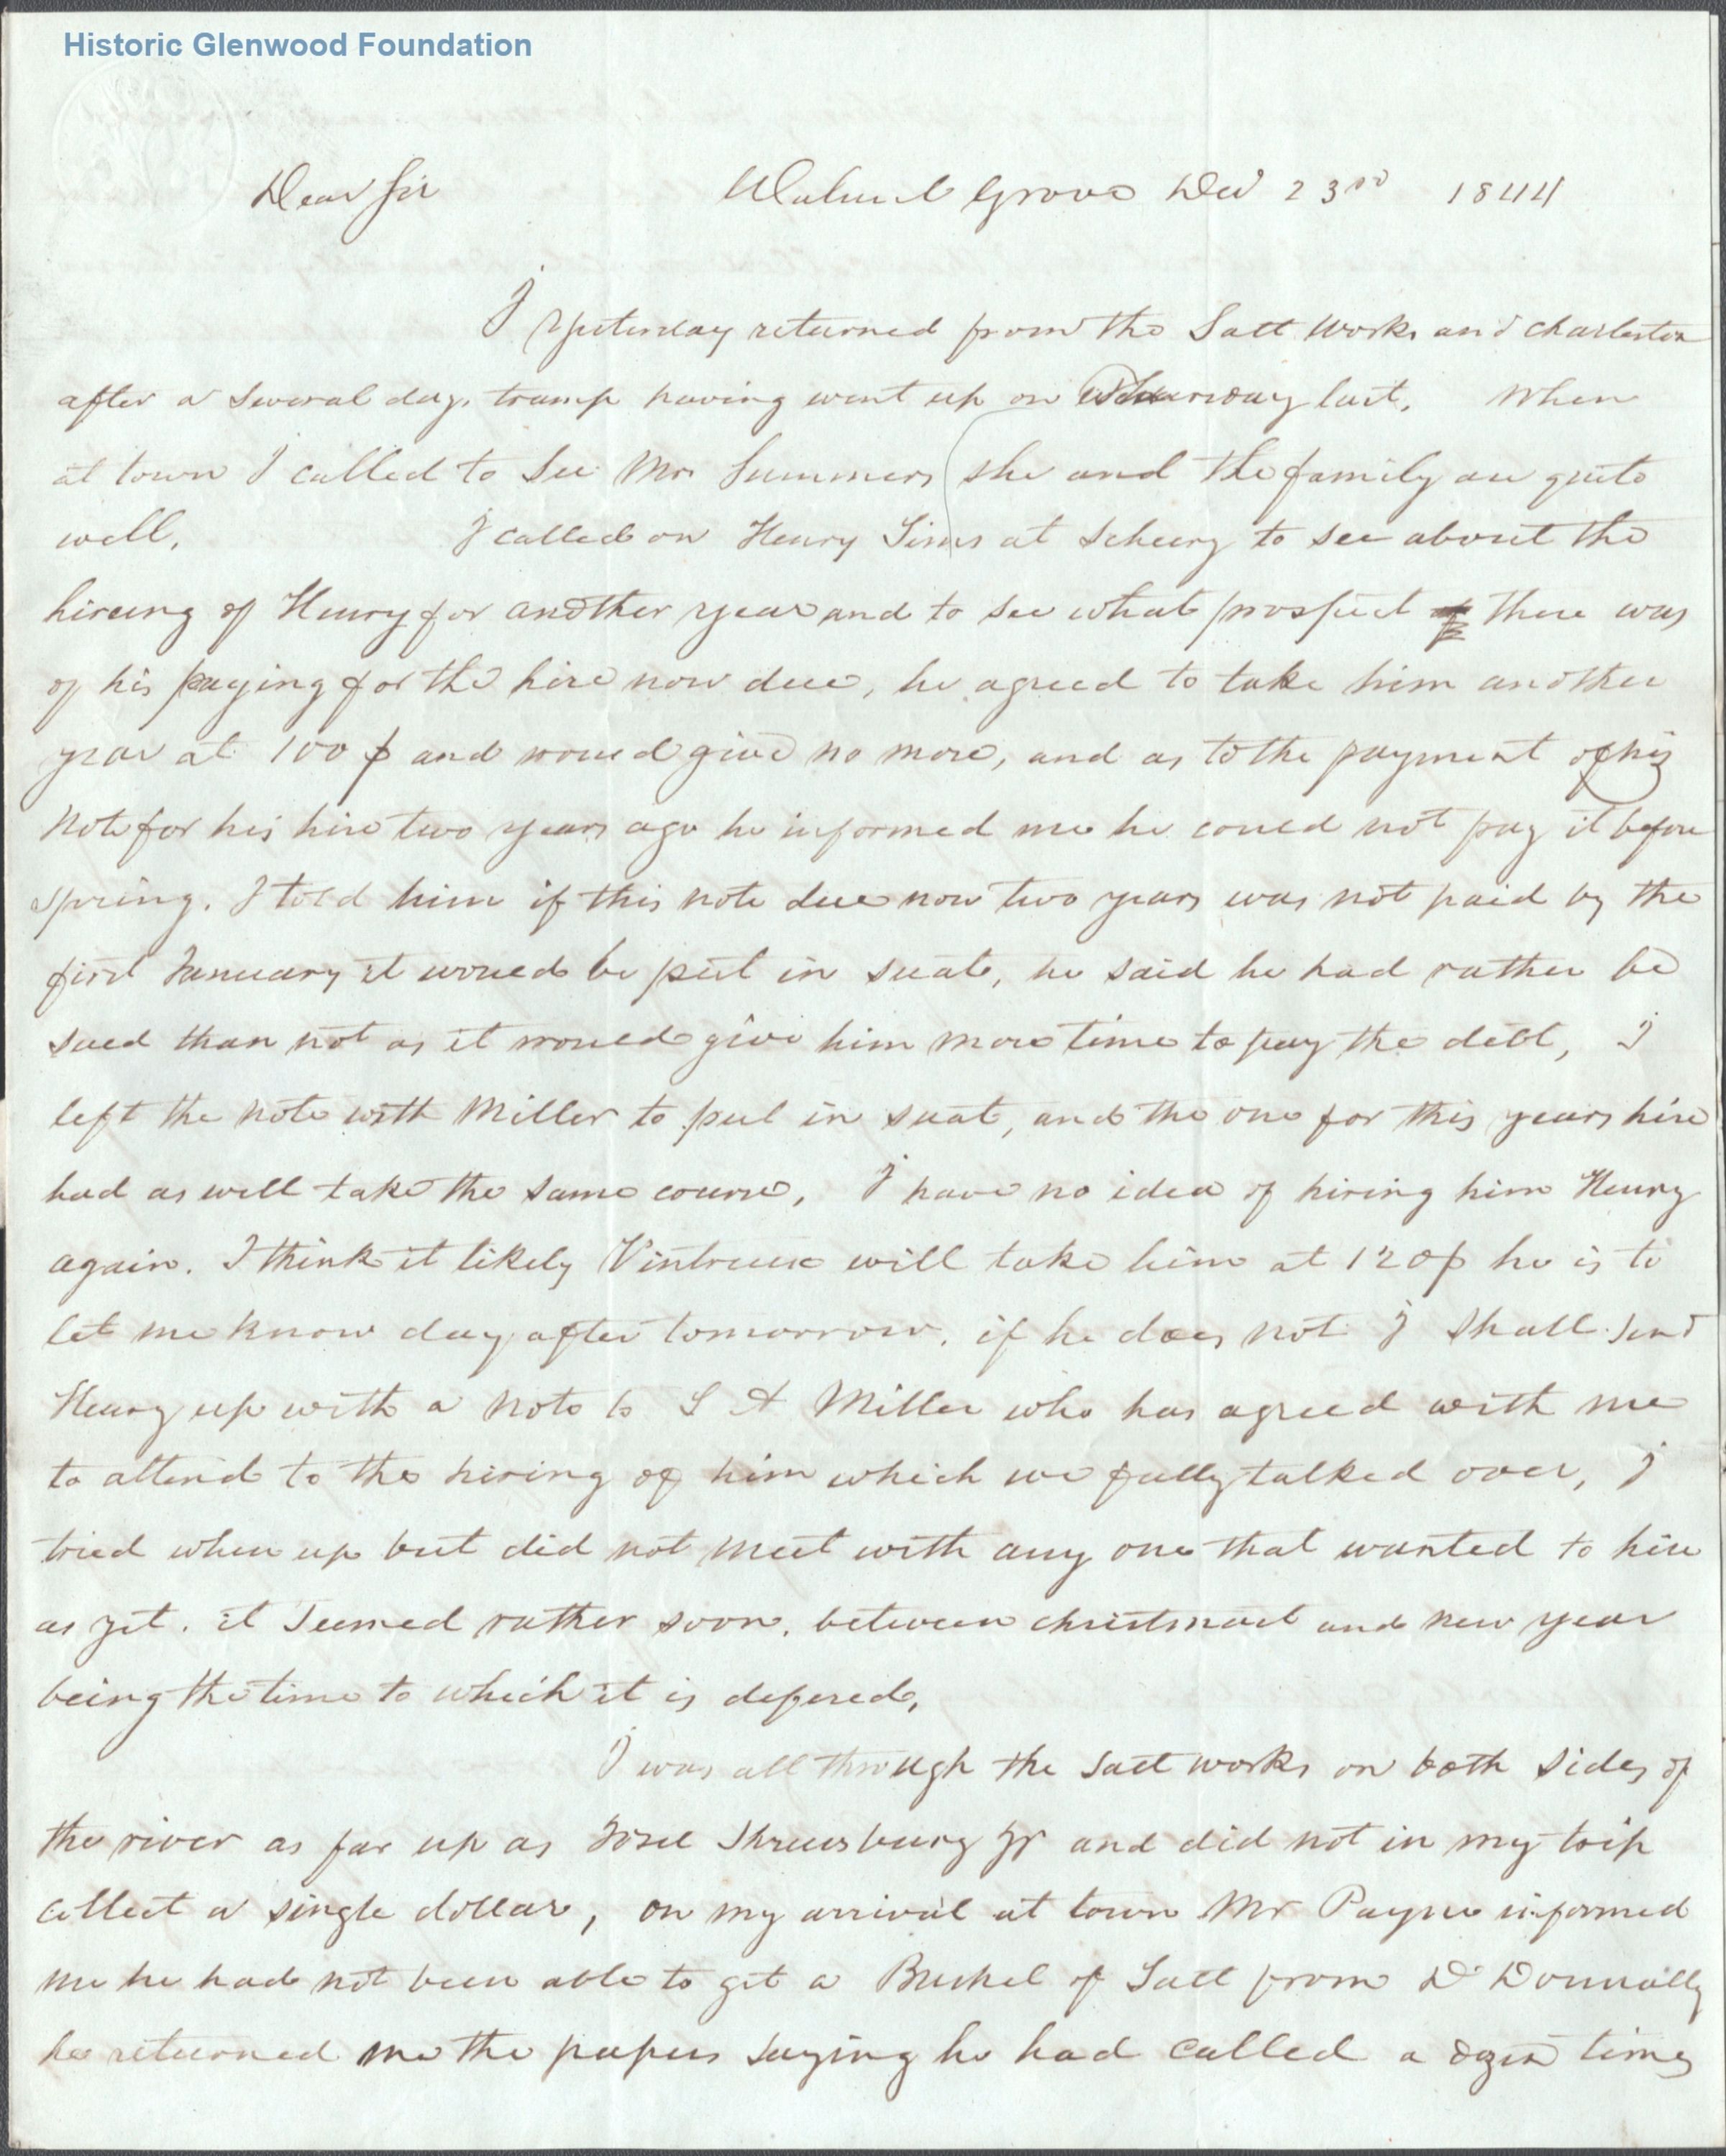 Historic Glenwood Foundation
Dear Sir Walnut Grove Dec 23rd 1844
I yesterday returned from the Salt Works and Charleston
after a several days tramp having went up on last. When
at town I called to See Mrs Summers she and the family are quite
well. I called on Henry Sims at to see about the
hireing of Henry for another year and to see what prospect there was
of his paying for the hire now due, he agreed to take him another
year at 100$ and would give no more, and as to the payment of his
note for his hire two years ago he informed me he could not pay it before
spring. I told him if this note due now two years was not paid by the
first January it would be put in suat, he said he had rather be
sued than not as it would give him more time to pay the debt, I
left the note with Miller to put in suat, and the one for this years hire
had as well take the same course, I have no idea of hiring him Henry
again. I think it likely will take him at 120$ he is to
let me know day after tomorrow, if he does not I shall send
Henry up with a note to S A Miller who has agreed with me
to attend to the hiring of him which we fully talked over, I
tried when up but did not meet with any one that wanted to hire
as yet. it seemed rather soon, between christmast and new year
being the time to which it is defered,
I was all through the salt works on both sides of
the river as far up as Shrewsbury Jr and did not in my trip
collect a single dollar, on my arrival at town Mr Payne informed
me he had not been able to get a Bushel of Salt from D Donnally
he returned me the papers saying he had called a dozen times